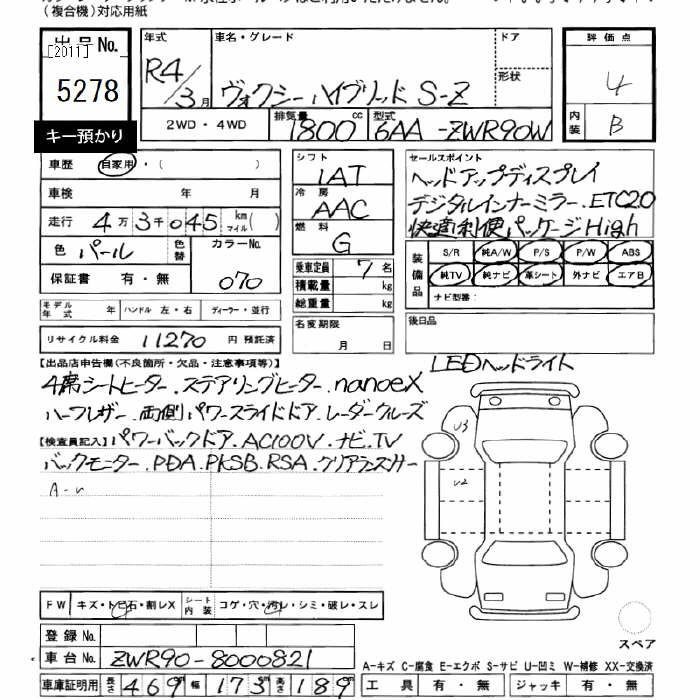 (複合機)対応用紙
出品No.
[2011]
5278
キー預かり
年式 R4/3月
車名・グレード
ヴォクシーハイブリッド S-Z
ドア
形状
2WD・4WD
排気量 1800 cc
型式 6AA-ZWR90W
評価点
4
内装 B
車歴 自家用・( )
車検 年 月
走行 4万3千045 km マイル ( )
色 パール 色替 カラーNo. 070
保証書 有・無
モデル年式 年 ハンドル 左・右 ディーラー・並行
リサイクル料金 11270 円 預託済
シフト
IAT
冷房
AAC
燃料
G
乗車定員 7 名
積載量 kg
総重量 kg
名変期限
月 日
セールスポイント
ヘッドアップディスプレイ
デジタルインナーミラー.ETC2.0
快適利便パッケージHigh
装備品
S/R 純A/W P/S P/W ABS
純TV 純ナビ 革シート 外ナビ エアB
ナビ型番:
後日品
LEDヘッドライト
【出品店申告欄(不良箇所・欠品・注意事項等)】
4席シートヒーター.ステアリングヒーター.nanoeX
ハーフレザー.両側パワースライドドア.レーダークルーズ
【検査員記入】パワーバックドア.AC100V.ナビ.TV
バックモニター.PDA.PKSB.RSA.クリアランスソナー
A-U
U3
U2
FW キズ・トビ石・割レX シート内装 コゲ・穴・汚レ・シミ・破レ・スレ
登録No.
車台No. ZWR90-8000821
車庫証明用 長さ 469 幅 173 高さ 189
スペア
A-キズ C-腐食 E-エクボ S-サビ U-凹ミ W-補修 XX-交換済
工具 有・無 ジャッキ 有・無